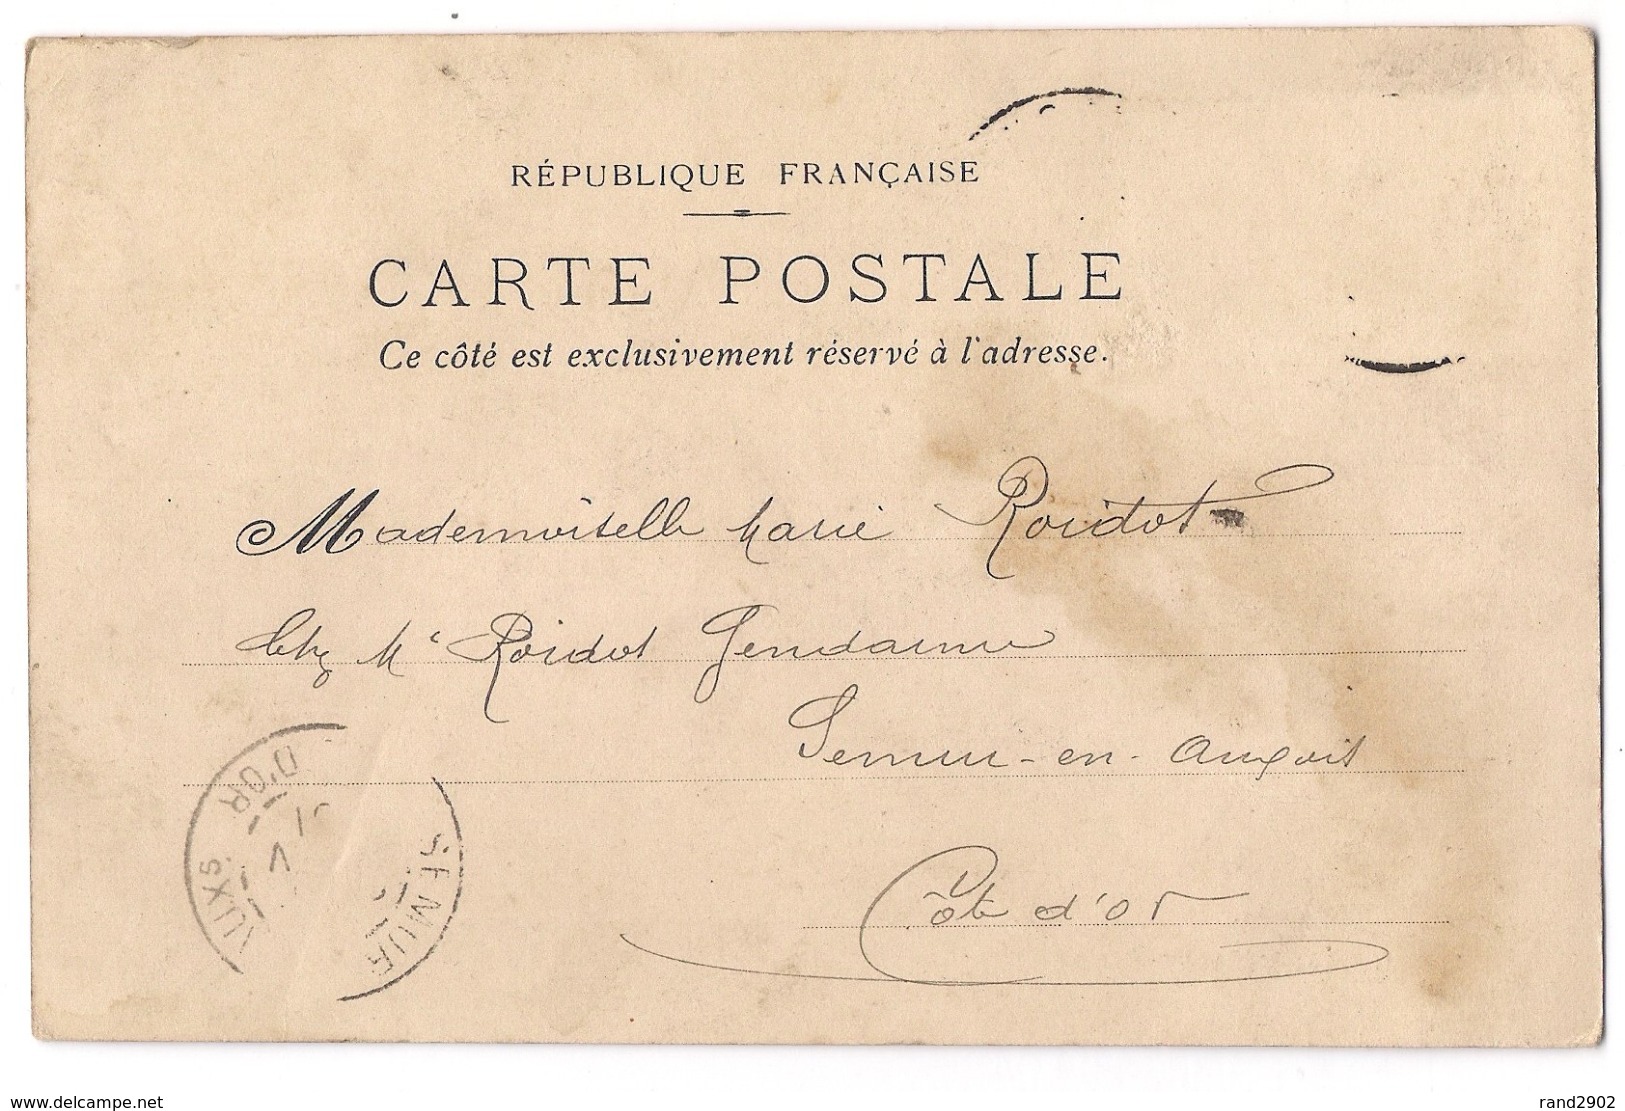 RÉPUBLIQUE FRANÇAISE
CARTE POSTALE
Ce côté est exclusivement réservé à l'adresse.
Mademoiselle Marie Roidot
Chez Mr Roidot Gendarme
Semur-en-Auxois
Côte d'or
D'OR
SEMUR
www.delcampe.net
rand2902